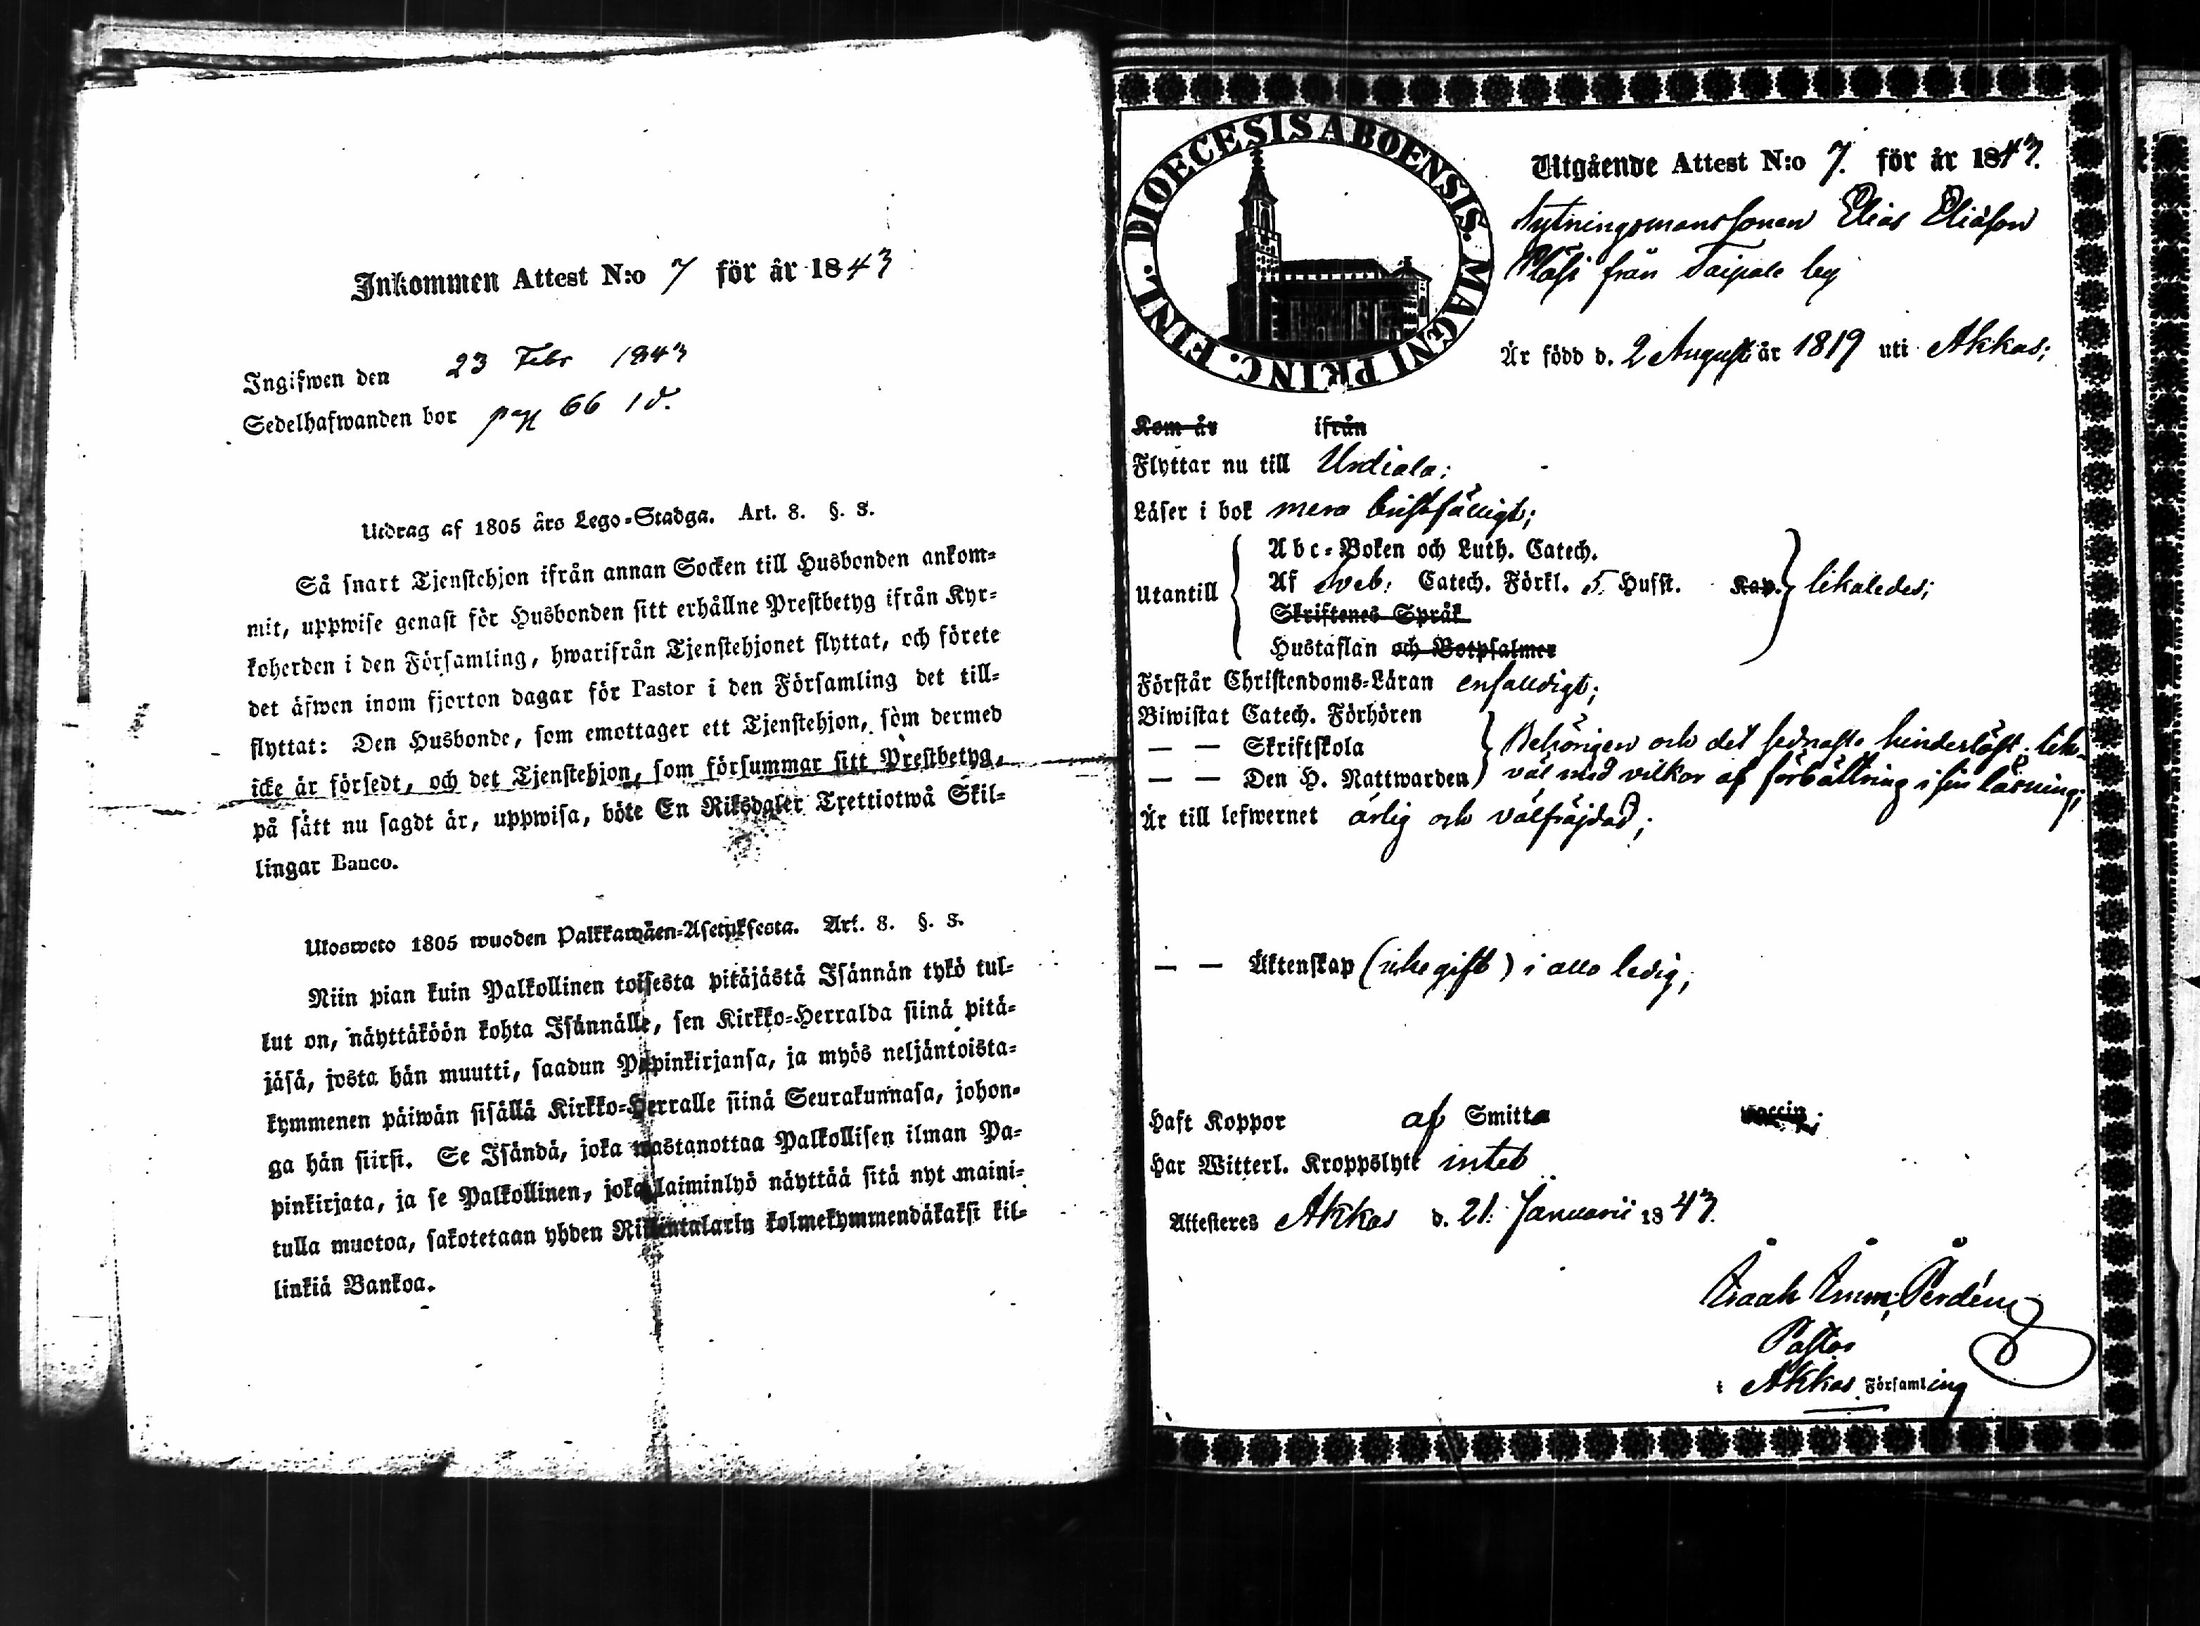 Inkommen Attest N:o 7 för år 1843
Ingifwen den 23 Febr 1843
Sedelhafwanden bor pag 66 1 d.
Utdrag af 1805 års Lego-Stadga. Art. 8. §. 8.
Så snart Tjenstehjon ifrån annan Socken till Husbonden ankom-
mit, uppwise genast för Husbonden sitt erhållne Prestbetyg ifrån Kyr-
koherden i den Församling, hwarifrån Tjenstehjonet flyttat, och förete
det äfwen inom fjorton dagar för Pastor i den Församling det till-
flyttat: Den Husbonde, som emottager ett Tjenstehjon, som dermed
icke är försedt, och det Tjenstehjon, som försummar sitt Prestbetyg,
på sätt nu sagdt är, uppwisa, böte En Riksdaler Trettiotwå Skil-
lingar Banco.
Ulosweto 1805 wuoden Palkkawäen-Asetuksesta. Art. 8. §. 8.
Niin pian kuin Palkollinen toisesta pitäjästä Isännän tykö tul-
lut on, näyttäköön kohta Isännälle, sen Kirkko-Herralda siinä pitä-
jäsä, josta hän muutti, saadun Papinkirjansa, ja myös neljäntoista-
kymmenen päiwän sisällä Kirkko-Herralle siinä Seurakunnasa, johon-
ga hän siirsi. Se Isändä, joka wastanottaa Palkollisen ilman Pa-
pinkirjata, ja se Palkollinen, joka laiminlyö näyttää sitä nyt maini-
tulla muotoa, sakotetaan yhden Riksintalarin kolmekymmendäkaksi kil-
linkiä Bankoa.
DIOECESIS ABOENSIS. MAGNI PRINC. FINL.
Utgående Attest N:o 7. för år 1843.
Nytningsmanssonen Elias Eliasson
från Taipale by
Är född d. 2 Augusti år 1819 uti Akkas;
Kom år ifrån
Flyttar nu till Urdiala;
Läser i bok mera bristfälligt;
Utantill
Abc-Boken och Luth. Catech.
Af Sveb. Catech. Förkl. 5. Hufst. Kap. likaledes;
Skriftenes Språk
Hustaflan och Botpsalmer
Förstår Christendoms-Läran enfaldigt;
Biwistat Catech. Förhören
— — Skriftskola Behörigen och det sednaste hinderlöst. lik-
— — Den H. Nattwarden väl med vilkor af förbättring i sin läsning;
Är till lefwernet ärlig och välfräjdad;
— — Äktenskap (icke gift) i allo ledig,
Haft Koppor af Smitta vaccin;
Har Witterl. Kroppslyte intet
Attesteres Akkas d. 21. Januarii 1843.
Isaak Imm. Perdén
Pastor
i Akkas Församling